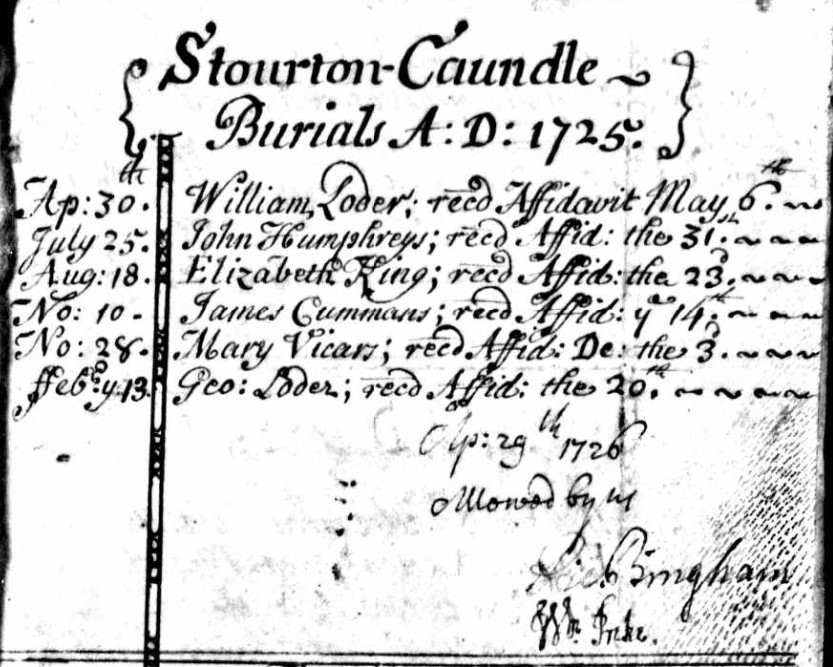 Stourton-Caundle
Burials A: D: 1725.
Ap: 30.th William Loder; recd Affidavit May 6.th
July 25. John Humphreys; recd Affid: the 31.st
Aug: 18. Elizabeth King; recd Affid: the 23.d
No: 10. James Cummans; recd Affid: ye 14.th
No: 28. Mary Vicars; recd Affid: De: the 3.d
ffeb: ye 13. Geo: Loder; recd Affid: the 20.th
Ap: 29th 1726
Allowed by us
Bingham
Wm.